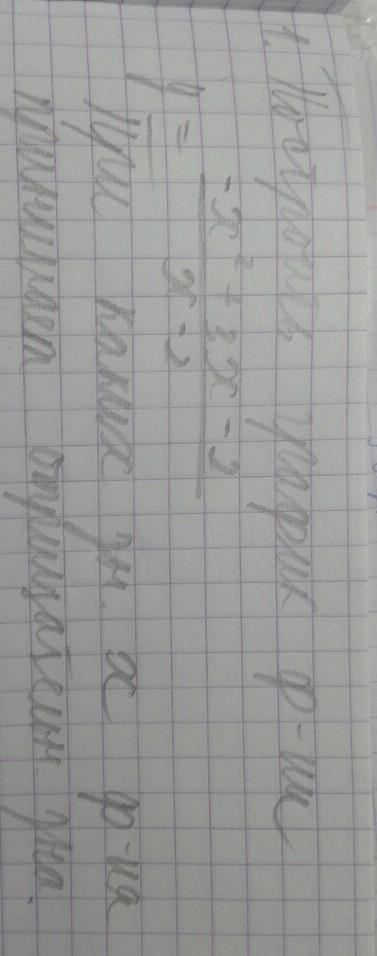 1. Построить график ф-ии
y = (-x² + 3x - 2) / (x - 2)
При каких зн. x ф-ия
принимает отрицательн зна.